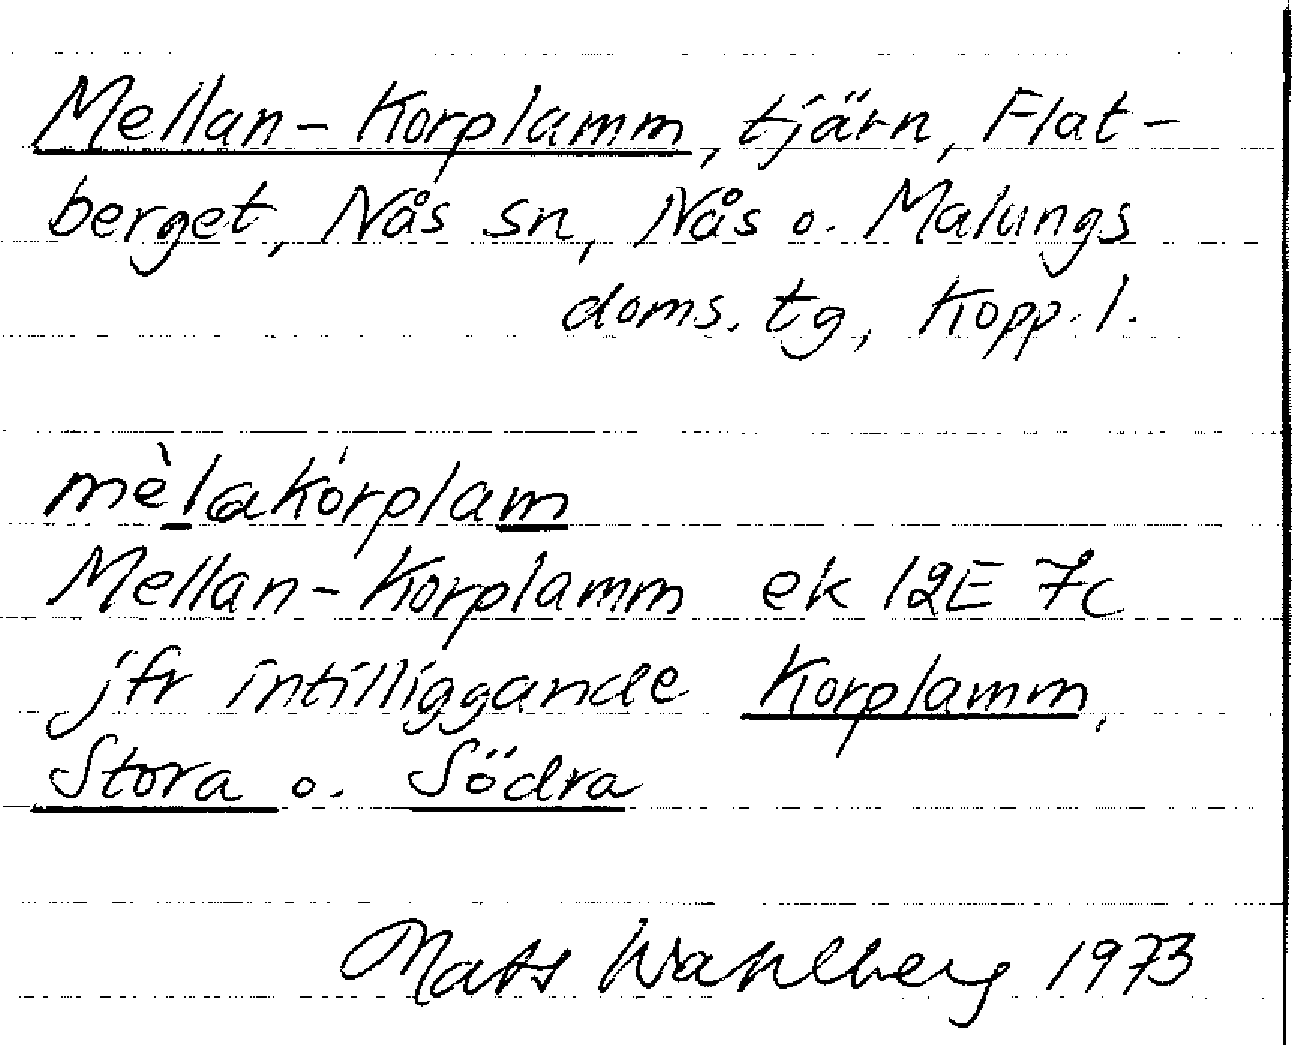 Mellan-Korplamm, tjärn, Flat-
berget, Nås sn, Nås o. Malungs
doms. tg, Kopp. l.
mèlakórplam
Mellan-Korplamm ek 12E 7c
jfr intilliggande Korplamm,
Stora o. Södra
Mats Wahlberg 1973